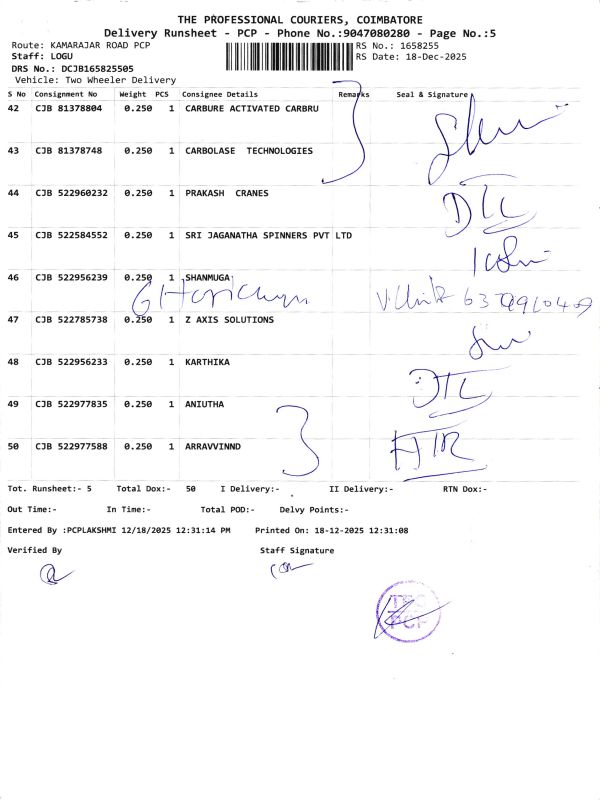 THE PROFESSIONAL COURIERS, COIMBATORE
Delivery Runsheet - PCP - Phone No.:9047080280 - Page No.:5
Route: KAMARAJAR ROAD PCP
RS No.: 1658255
Staff: LOGU
RS Date: 18-Dec-2025
DRS No.: DCJB165825505
Vehicle: Two Wheeler Delivery
S No Consignment No Weight PCS Consignee Details Remarks Seal & Signature
42 CJB 81378804 0.250 1 CARBURE ACTIVATED CARBRU
43 CJB 81378748 0.250 1 CARBOLASE TECHNOLOGIES
44 CJB 522960232 0.250 1 PRAKASH CRANES
45 CJB 522584552 0.250 1 SRI JAGANATHA SPINNERS PVT LTD
46 CJB 522956239 0.250 1 SHANMUGA
47 CJB 522785738 0.250 1 Z AXIS SOLUTIONS
48 CJB 522956233 0.250 1 KARTHIKA
DTC
49 CJB 522977835 0.250 1 ANIUTHA
50 CJB 522977588 0.250 1 ARRAVVINND
Tot. Runsheet:- 5 Total Dox:- 50 I Delivery:- II Delivery:- RTN Dox:-
Out Time:- In Time:- Total POD:- Delvy Points:-
Entered By :PCPLAKSHMI 12/18/2025 12:31:14 PM Printed On: 18-12-2025 12:31:08
Verified By Staff Signature
PCP